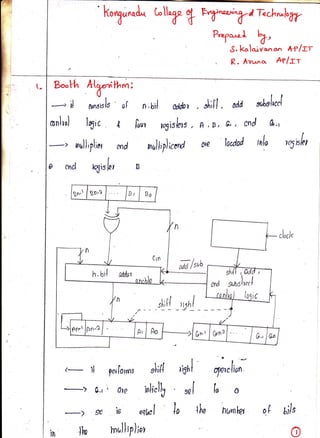 Kongunadu College of Engineering & Technology
Prepared by,
S. Kalaivanan AP/IT
R. Aruna AP/IT
1. Booth Algorithm:
→ it consists of n-bit adder, shift, add subtract
control logic & four registers, A, B, Q, and Q-1
→ multiplier and multiplicand are loaded into register
Q and register B
Bn-1 Bn-2 B1 B0
n
clock
n
Cin
add/sub
n-bit adder
enable
shift, add,
and subtract
control logic
n
shift right
An-1 An-2 A1 A0
Qn-1 Qn-2 Q1 Q0
← it performs shift right operation
→ Q-1 are initially set to 0
→ SC is equal to the number of bits
in the multiplier
1